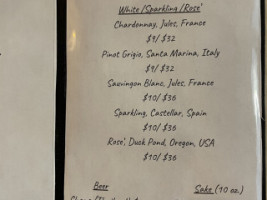 White/Sparkling/Rose'
Chardonnay, Jules, France
$9/ $32
Pinot Grigio, Santa Marina, Italy
$9/ $32
Sauvingon Blanc, Jules, France
$10/ $36
Sparkling, Castellar, Spain
$10/ $36
Rose', Duck Pond, Oregon, USA
$10/ $36
Beer
Sake (10 oz.)